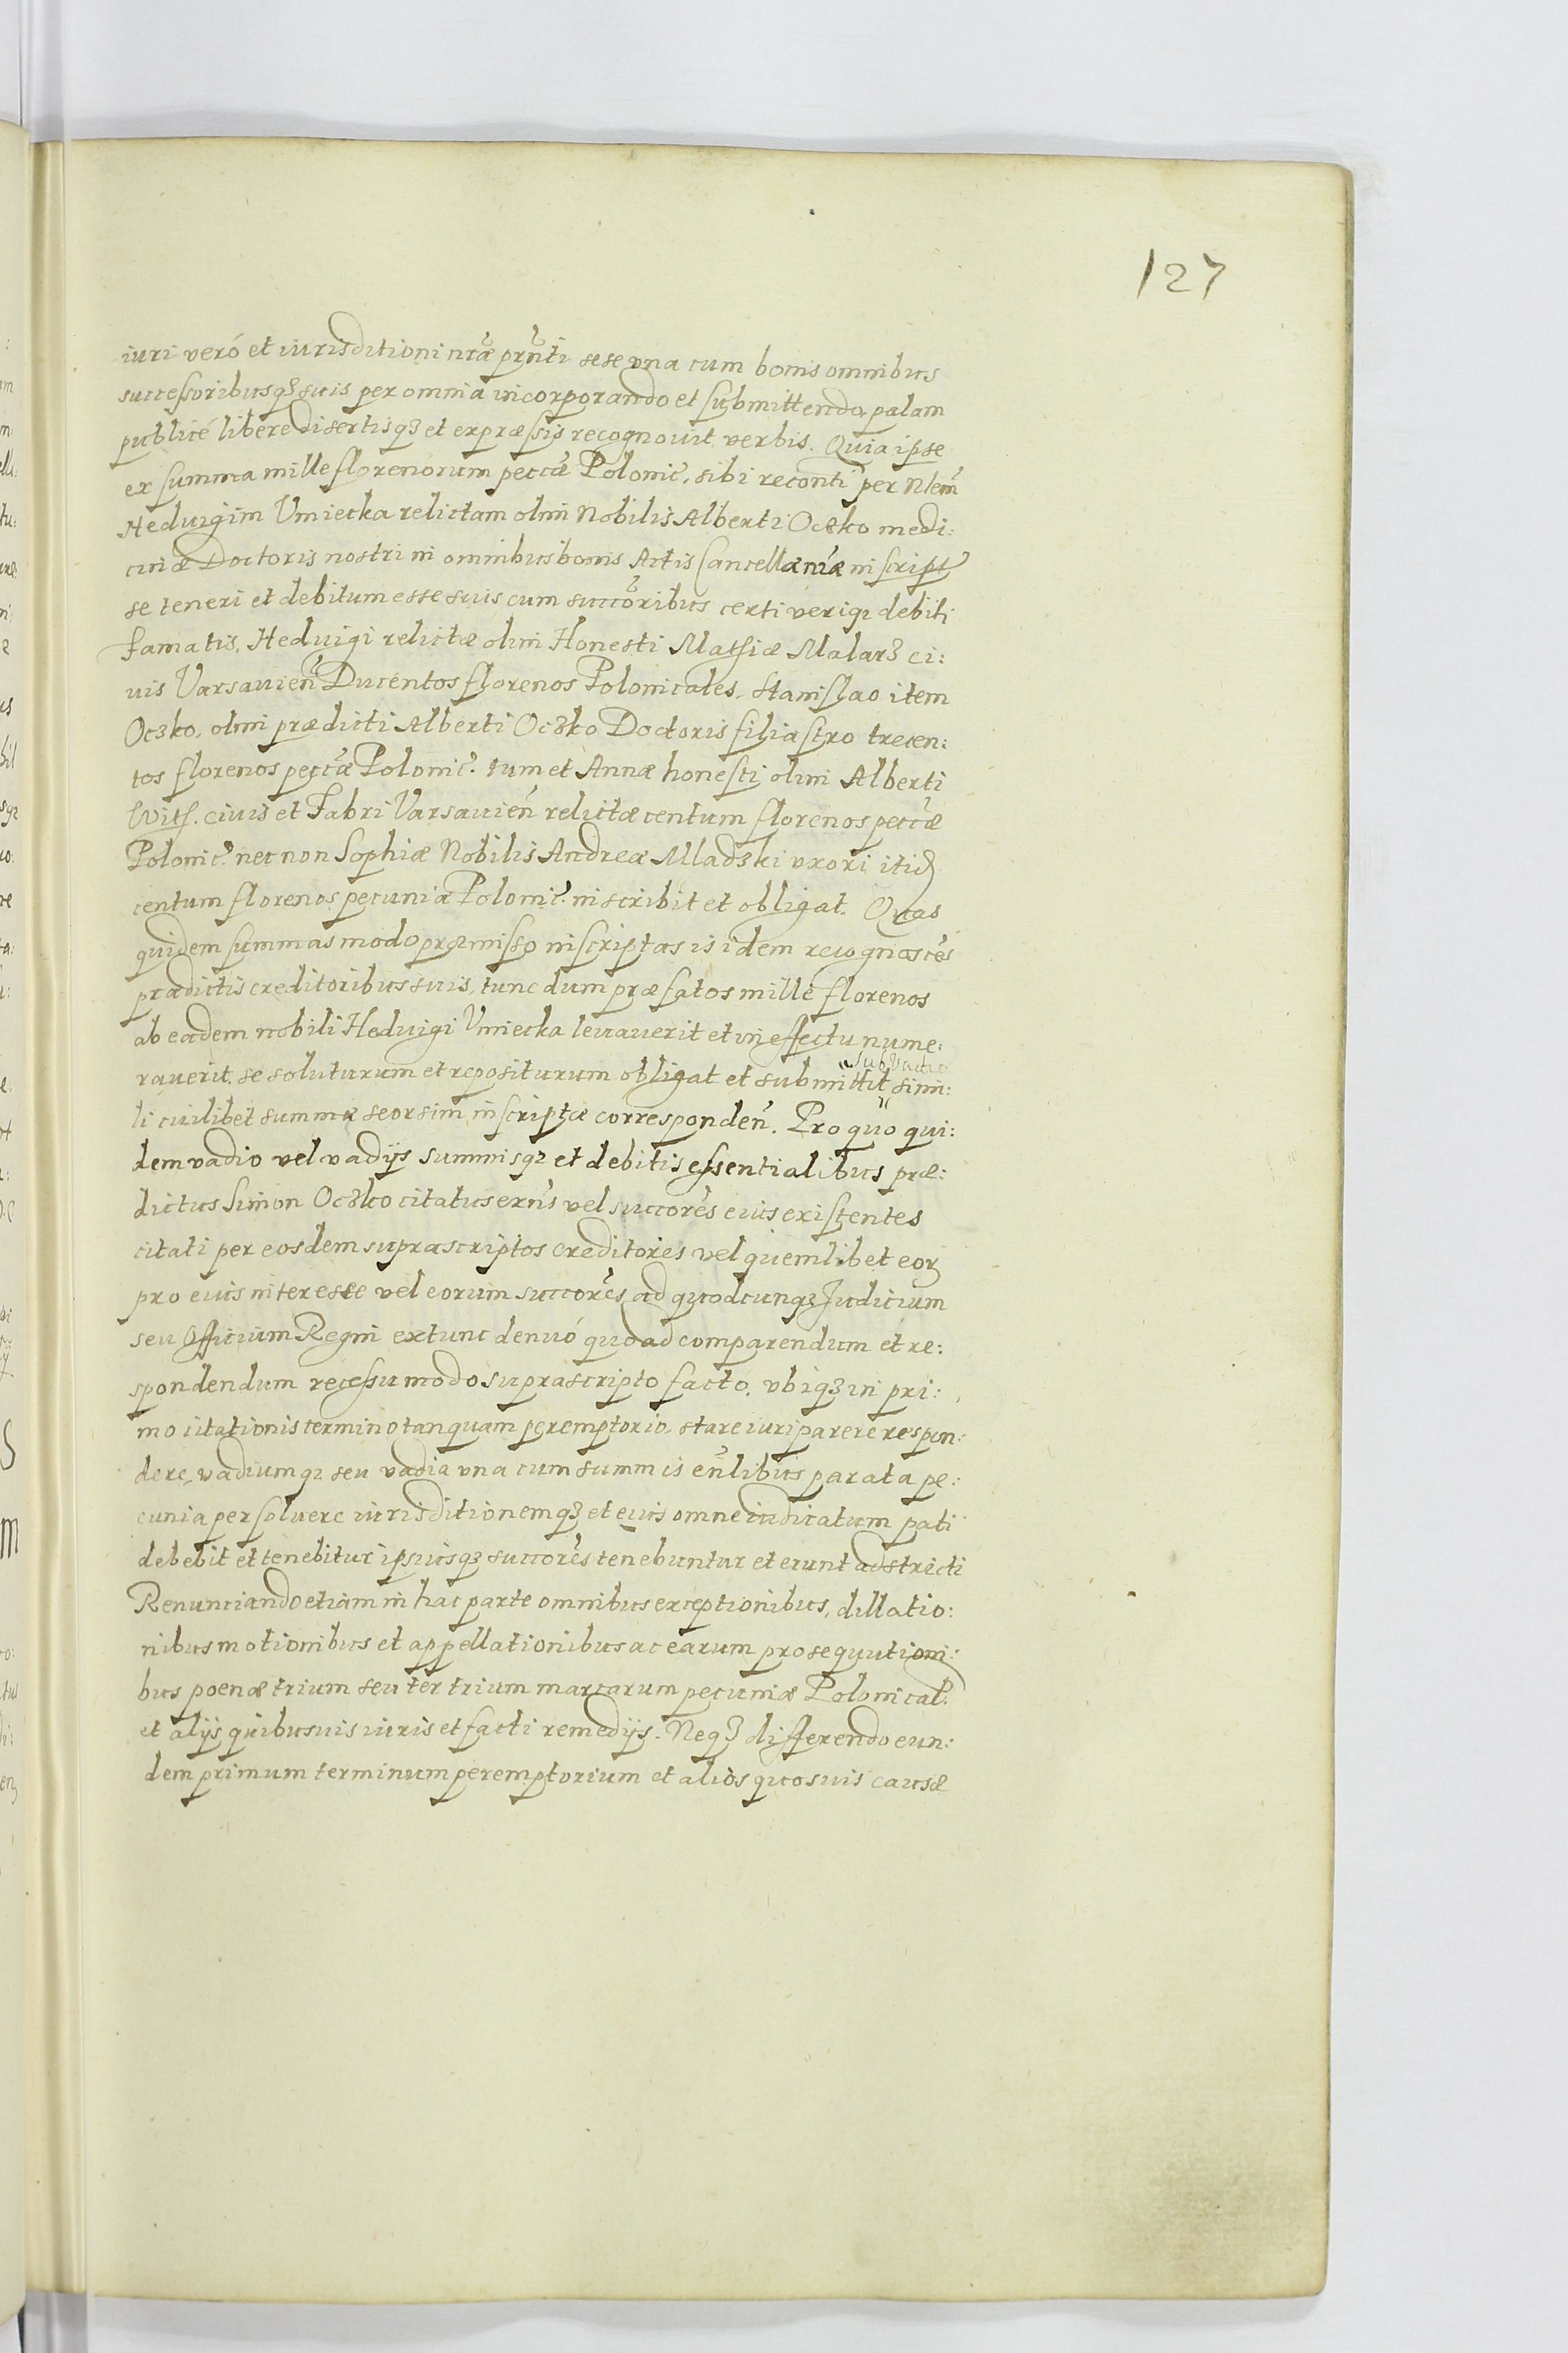 127
iuri veró et iurisditioni nrae prnti sese vna cum bonis omnibus
successoribusq3 suis per omnia incorporando et submittendo, palam
publicé libere disertisq3 et expraessis recognouit verbis. Quia ipse
ex summa mille florenorum peccae Polonic. sibi reconti per Nlem
Heduigim Vmiecka relictam olim Nobilis Alberti Oczko medi:
cinae Doctoris nostri in omnibus bonis Actis Cancellariae inscript
se teneri et debitum esse suis cum succoribus certi veriq3 debiti
famatis, Heduigi relictae olim Honesti Mathiae Malarz ci:
uis Varsauien Ducentos florenos Polonicales, Stanislao item
Oczko, olim praedicti Alberti Oczko Doctoris filiastro trecen:
tos florenos peccae Polonic. tum et Annae honesti olim Alberti
civis et Fabri Varsauien relictae centum florenos peccae
Polonic. nec non Sophiae Nobilis Andreae Mladzki vxori itid
centum florenos pecuniae Polonic. inscribit et obligat. Quas
quidem summas modo praemisso inscriptas is idem recognosces
praedictis creditoribus suis, tunc dum praefatos mille florenos
ab eadem nobili Heduigi Vmiecka leuauerit et in effectu nume:
rauerit, se soluturum et repositurum obligat et submittit "sub vadio simi:
li cuilibet summae seorsim inscriptae corresponden. Pro quo qui:
dem vadio vel vadijs summisq3 et debitis essentialibus prae:
dictus Simon Oczko citatus exns vel succores eius existentes
citati per eosdem suprascriptos creditores vel quemlibet eor
pro eius interesse vel eorum succores, ad quodcunq3 Judicium
seu Officium Regni extunc denuó quo ad comparendum et re:
spondendum recessu modo suprascripto facto, vbiq3 in pri:
mo citationis termino tanquam peremptorio, stare iuri parere respon:
dere, vadiumq3 seu vadia vna cum summis enlibus parata pe:
cunia persoluere iurisditionemq3 et eius omne iudicatum pati
debebit et tenebitur ipsiusq3 succores tenebuntur et erunt adstricti
Renunciando etiam in hac parte omnibus exceptionibus, dillatio:
nibus motionibus et appellationibus ac earum prosequutioni:
bus poenae trium seu ter trium marcarum pecuniae Polonical.
et alijs quibusuis iuris et facti remedijs. Neq3 differendo eun:
dem primum terminum peremptorium et alios quosuis causae